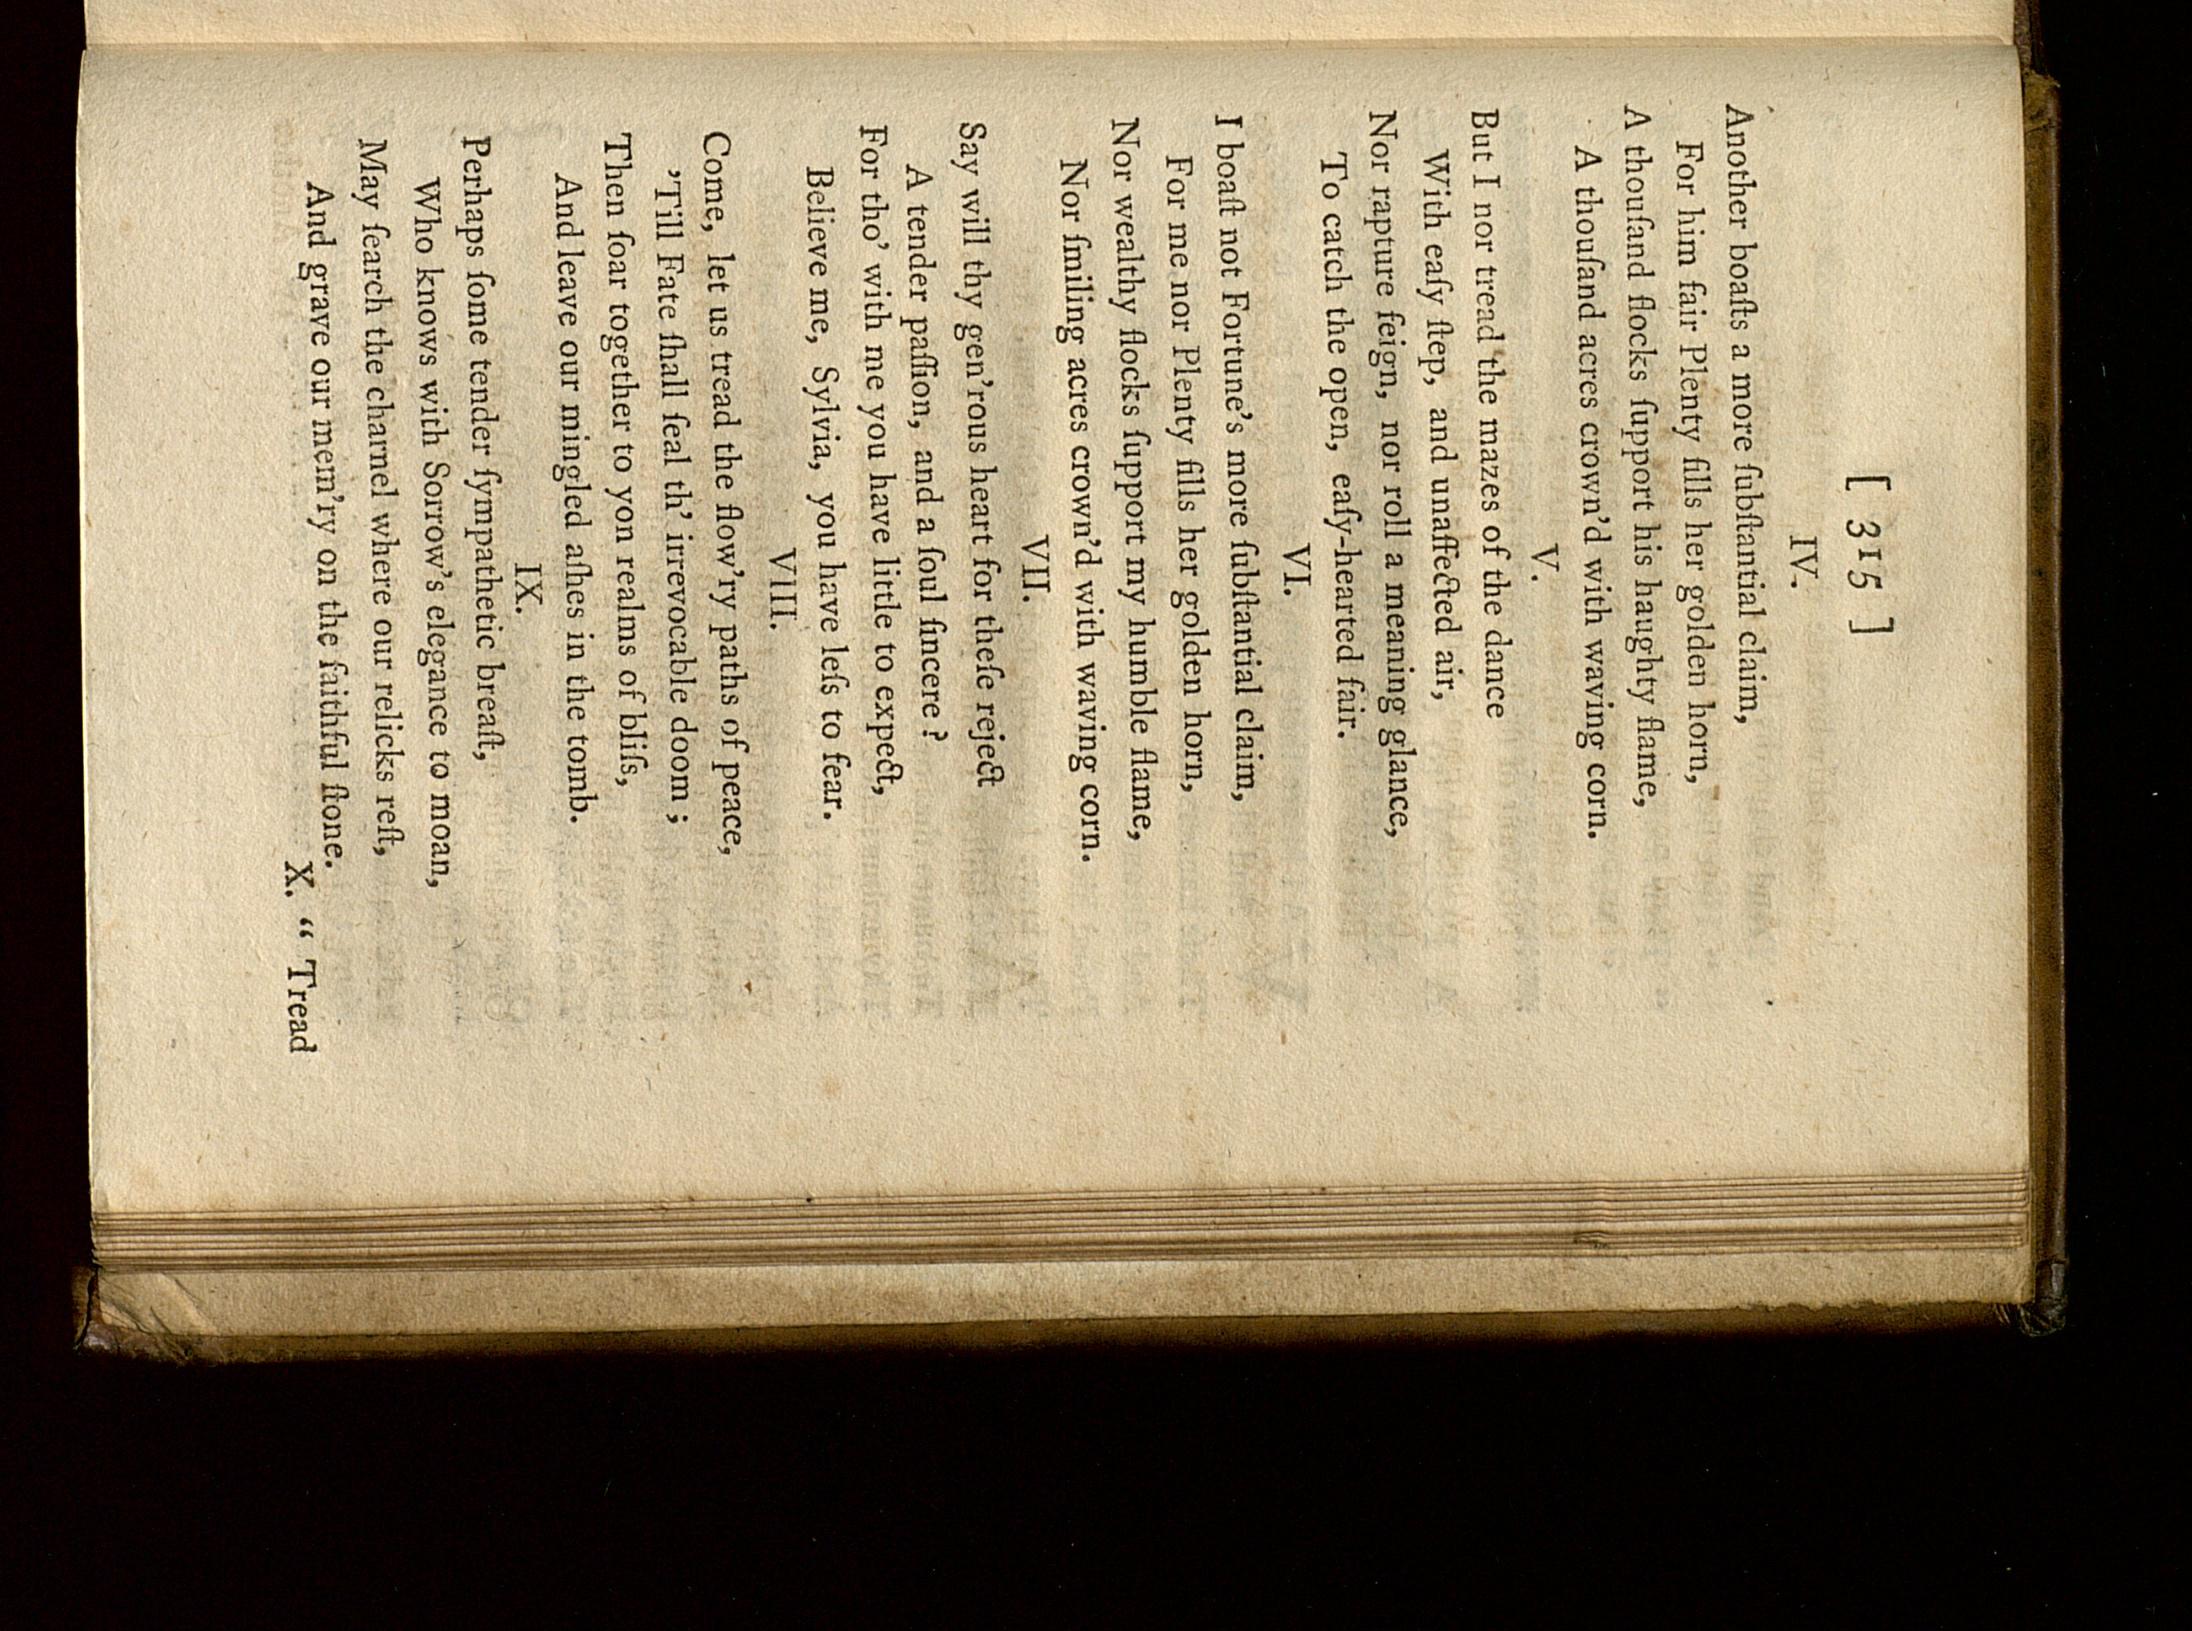 [ 315 ]
IV.
Another boaſts a more ſubſtantial claim,
For him fair Plenty fills her golden horn,
A thouſand flocks ſupport his haughty flame,
A thouſand acres crown'd with waving corn.
V.
But I nor tread the mazes of the dance
With eaſy ſtep, and unaffected air,
Nor rapture feign, nor roll a meaning glance,
To catch the open, eaſy-hearted fair.
VI.
I boaſt not Fortune's more ſubſtantial claim,
For me nor Plenty fills her golden horn,
Nor wealthy flocks ſupport my humble flame,
Nor ſmiling acres crown'd with waving corn.
VII.
Say will thy gen'rous heart for theſe reject
A tender paſſion, and a ſoul ſincere ?
For tho' with me you have little to expect,
Believe me, Sylvia, you have leſs to fear.
VIII.
Come, let us tread the flow'ry paths of peace,
'Till Fate ſhall ſeal th' irrevocable doom ;
Then ſoar together to yon realms of bliſs,
And leave our mingled aſhes in the tomb.
IX.
Perhaps ſome tender ſympathetic breaſt,
Who knows with Sorrow's elegance to moan,
May ſearch the charnel where our relicks reſt,
And grave our mem'ry on the faithful ſtone.
X. “ Tread